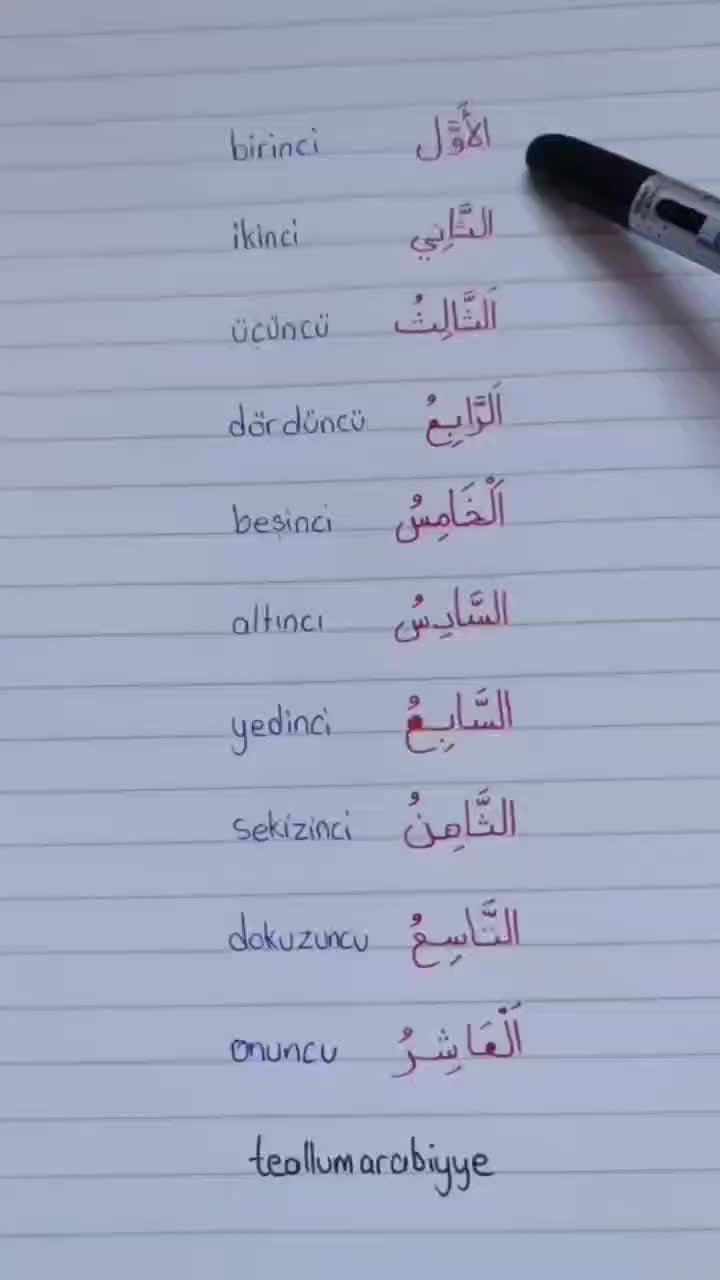 birinci الأَوَّل
ikinci الثَّانِي
üçüncü اَلثَّالِثُ
dördüncü اَلرَّابِعُ
beşinci اَلْخَامِسُ
altıncı السَّادِسُ
yedinci السَّابِعُ
sekizinci الثَّامِنُ
dokuzuncu التَّاسِعُ
onuncu اَلْعَاشِرُ
teallumarabiyye